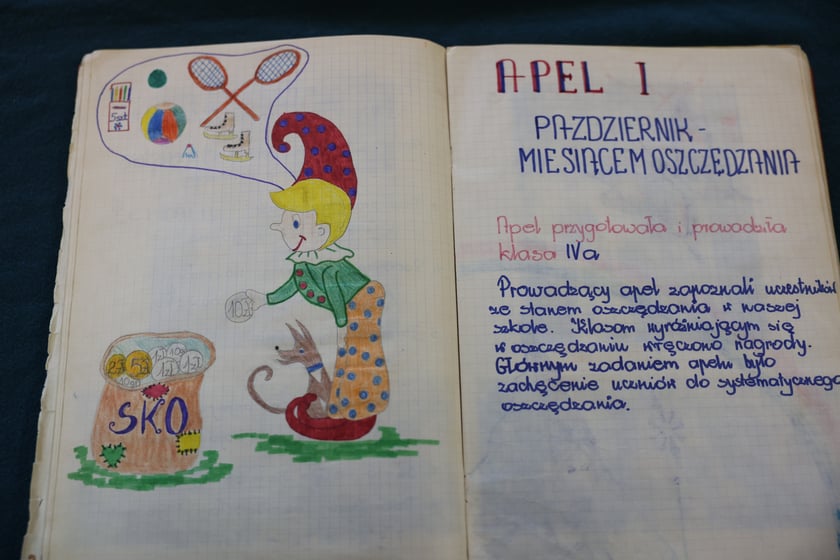 5szt
10zł
2zł
5zł
1zł
10gr
1zł
1zł
SKO
APEL I
PAZDZIERNIK -
MIESIĄCEM OSZCZĘDZANIA
Apel przygotowała i prowadziła
klasa IVa
Prowadzący apel zapoznali uczestników
ze stanem oszczędzania w naszej
szkole. Klasom wyróżniającym się
w oszczędzaniu wręczono nagrody.
Głównym zadaniem apelu było
zachęcenie uczniów do systematycznego
oszczędzania.